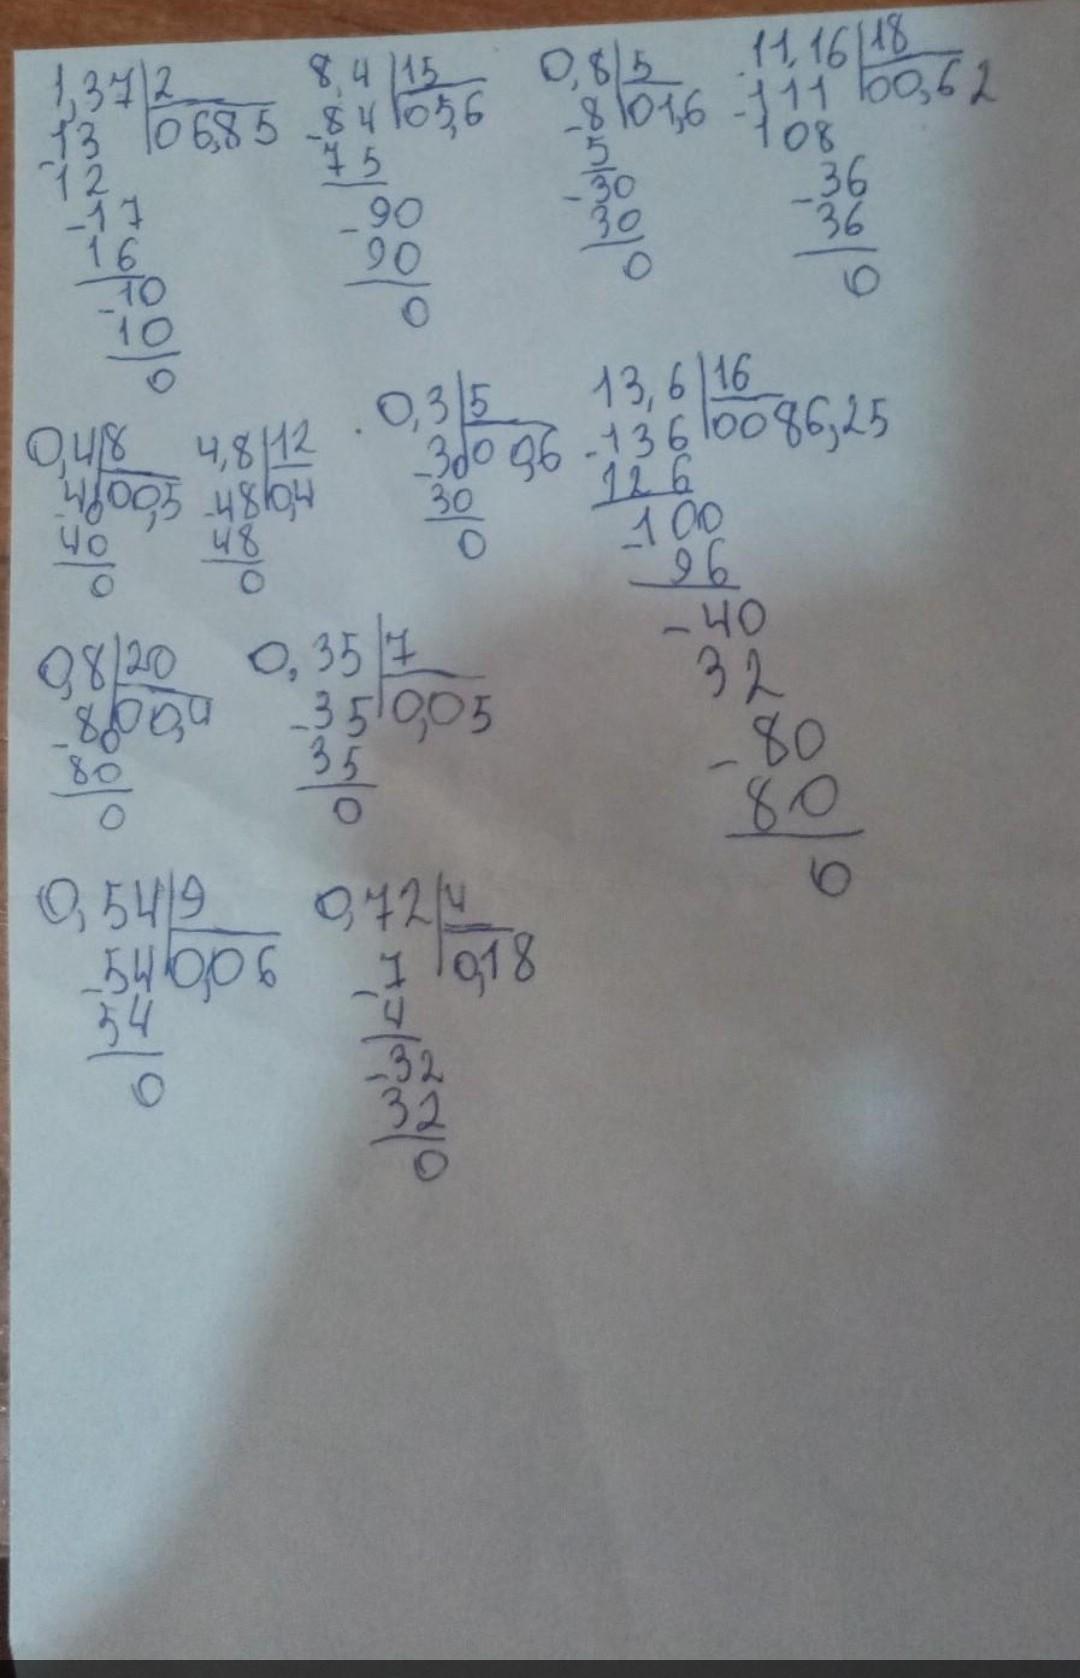 1,37|2
-13 |06,85
12
-17
16
-10
10
0
8,4|15
-84|05,6
75
-90
90
0
0,8|5
-8|01,6
5
-30
30
0
11,16|18
-111|00,62
108
-36
36
0
0,4|8
-40|00,5
40
0
4,8|12
-48|0,4
48
0
0,3|5
-30|00,6
30
0
13,6|16
-136|0086,25
126
-100
96
-40
32
-80
80
0
0,8|20
-80|00,4
80
0
0,35|7
-35|0,05
35
0
0,54|9
-54|0,06
54
0
0,72|4
-7|0,18
4
-32
32
0